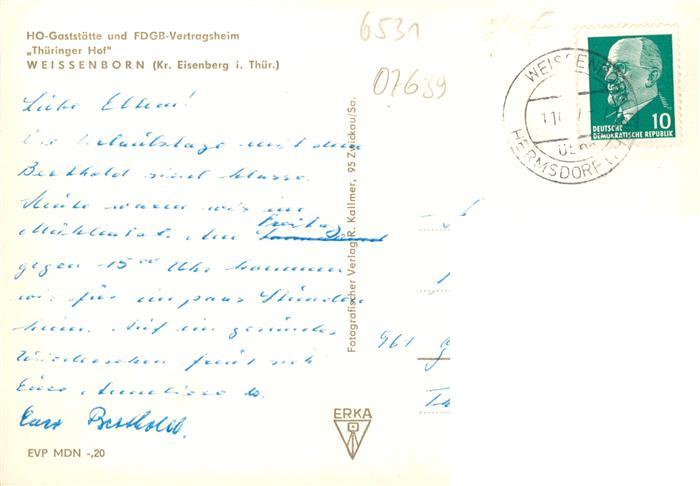 HO-Gaststätte und FDGB-Vertragsheim
„Thüringer Hof"
WEISSENBORN (Kr. Eisenberg i. Thür.)
6531
07639
Liebe Eltern!
Die Urlaubstage mit dem
Berthold sind klasse.
Heute waren wir im
Mühltal. Am Freitag
gegen 15 00 Uhr kommen
wir für ein paar Stunden
heim. Auf ein gesundes
Wiedersehen freut sich
Eure Anneliese u.
Euer Berthold.
EVP MDN -,20
Fotografischer Verlag R. Kallmer, 95 Zwickau/Sa.
ERKA
961
DEUTSCHE
DEMOKRATISCHE REPUBLIK
10
HERMSDORF